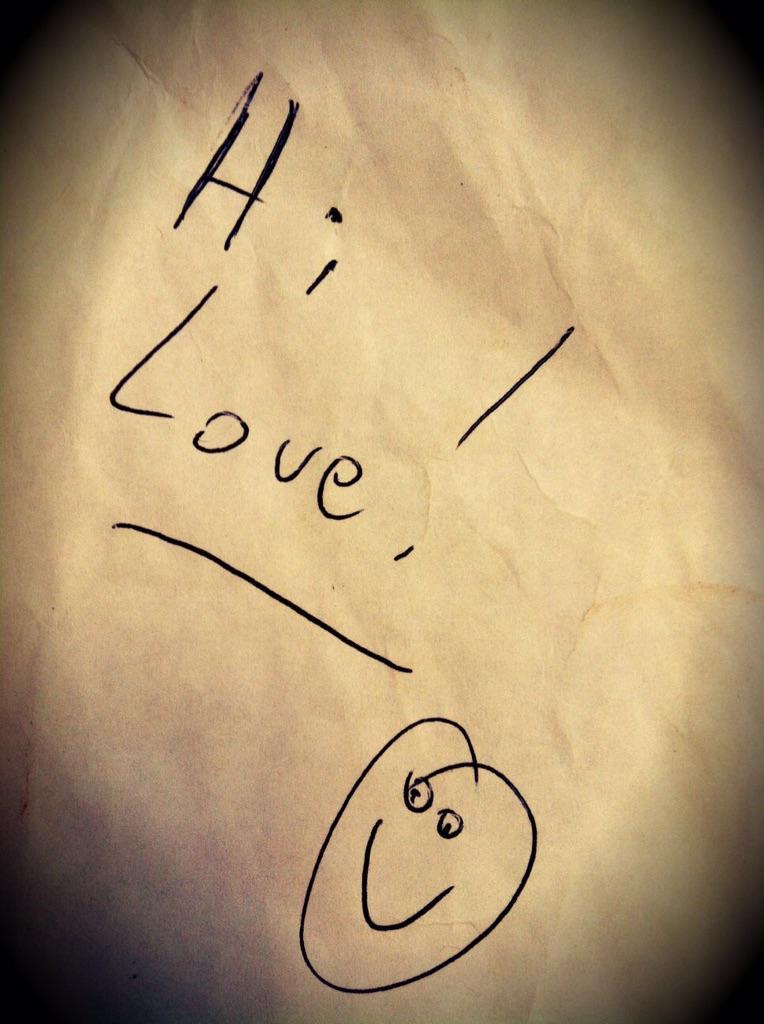 Hi
Love!